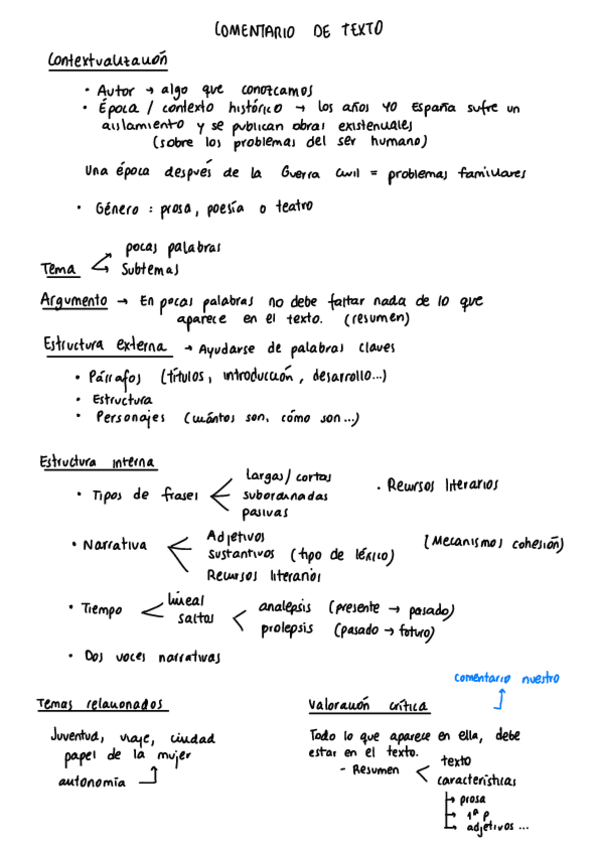 COMENTARIO DE TEXTO
Contextualización
• Autor → algo que conozcamos
• Época / contexto histórico → los años 40 España sufre un
aislamiento y se publican obras existenciales
(sobre los problemas del ser humano)
Una época después de la Guerra Civil = problemas familiares
• Género : prosa, poesía o teatro
pocas palabras
Tema
Subtemas
Argumento → En pocas palabras no debe faltar nada de lo que
aparece en el texto. (resumen)
Estructura externa → Ayudarse de palabras claves
• Párrafos (títulos, introducción, desarrollo...)
• Estructura
• Personajes (cuántos son, cómo son...)
Estructura interna
largas/cortas
• Tipos de frases
subordinadas
pasivas
• Recursos literarios
Adjetivos
• Narrativa
sustantivos (tipo de léxico)
Recursos literarios
(Mecanismos cohesión)
• Tiempo
lineal
saltos
analepsis (presente → pasado)
prolepsis (pasado → futuro)
• Dos voces narrativas
Temas relacionados
Juventud, viaje, ciudad
papel de la mujer
autonomía
comentario nuestro
Valoración crítica
Todo lo que aparece en ella, debe
estar en el texto.
- Resumen
texto
características
prosa
1ª p
adjetivos ...